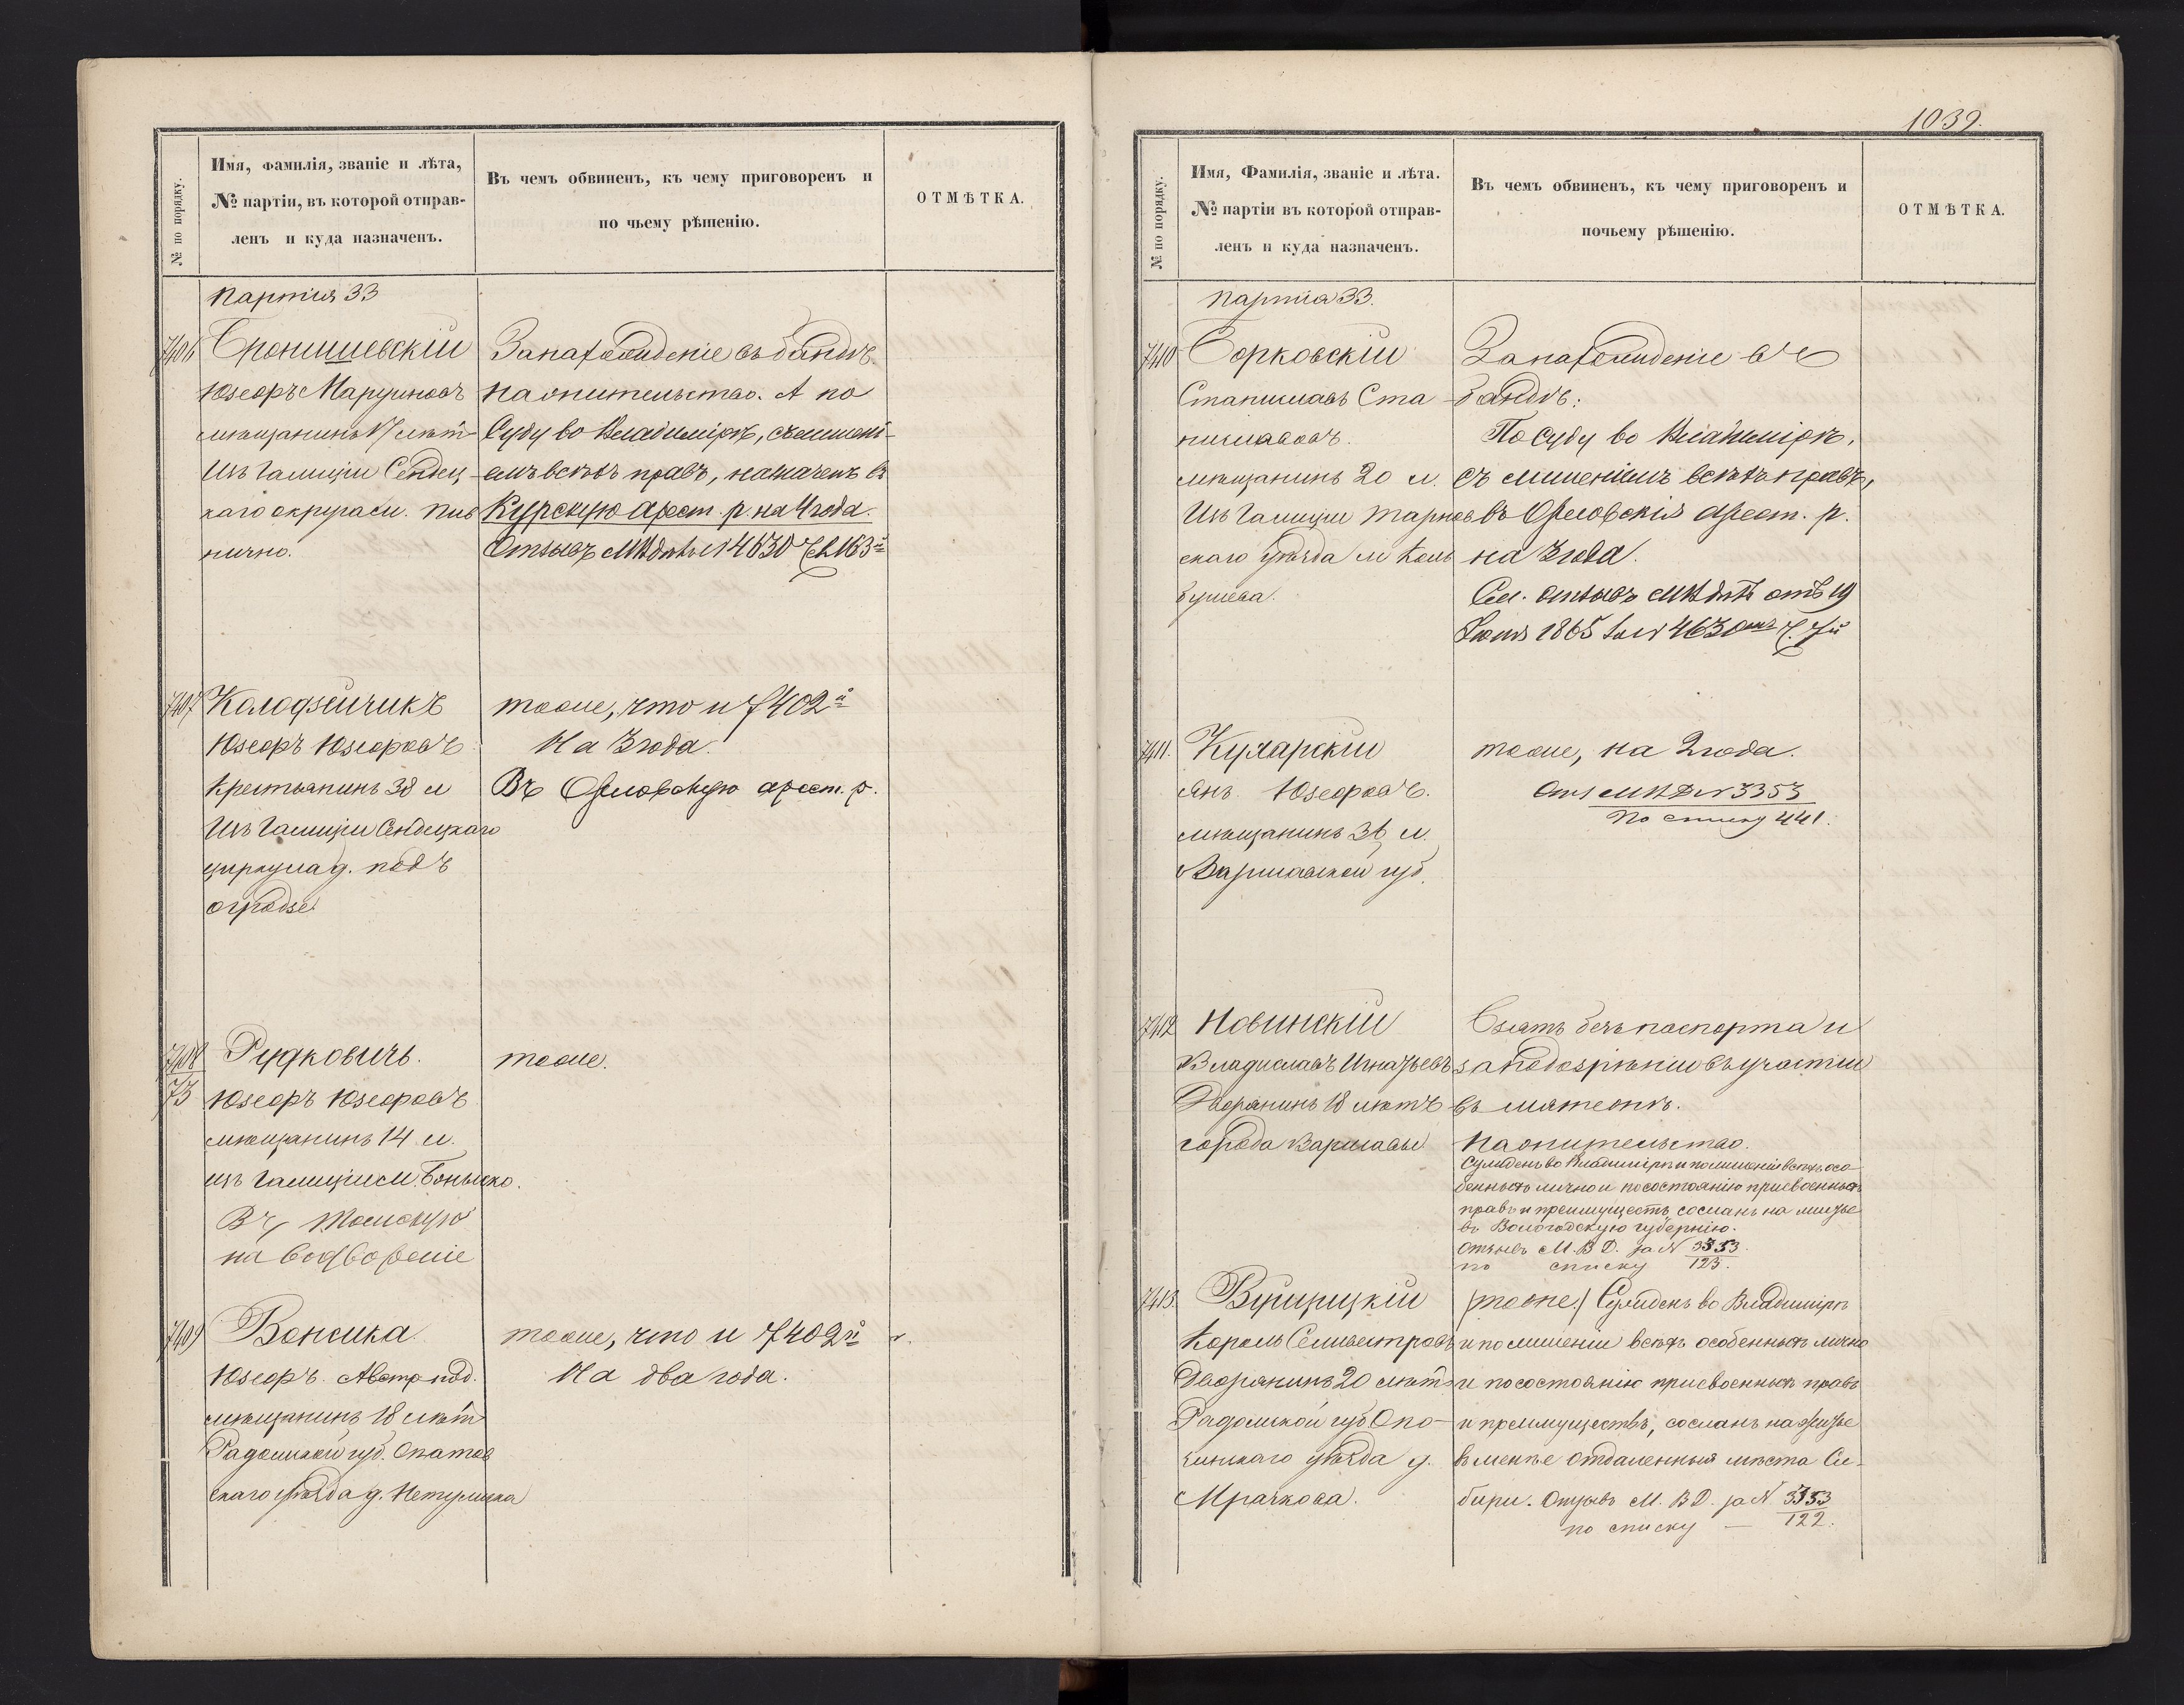 1039.
№ по порядку.
Имя, фамилія, званіе и лѣта,
№ партіи, въ которой отправ-
ленъ и куда назначенъ.
Въ чемъ обвиненъ, къ чему приговоренъ и
по чьему рѣшенію.
ОТМѢТКА.
партія 33
7406
Бронишевскій
Юзефъ Марциновъ
мѣщанинъ 17 лѣт
Изъ Галиціи Сендец
каго округа м.
нично.
За нахожденіе въ бандѣ
на жительство. А по
Суду во Владимірѣ, съ лишені-
емъ всѣхъ правъ, назначенъ въ
Курскую арест. р. на 4 года.
Отзывъ МВДѣлъ № 4630
7407
Колодзейчикъ
Юзефъ Юзефовъ
Крестьянинъ 38 л
Изъ Галиціи Сендецкаго
циркула д. подъ
огродзе
тоже, что и 7402й
На 3 года.
Въ Орловскую арест. р.
7408
73
Рудковичъ.
Юзефъ Юзефовъ
мѣщанинъ 14 л.
изъ Галиціи м.
Въ Томскую
на водвореніе
тоже.
7409
Вонсика
Юзефъ. Австр. под.
мѣщанинъ 18 лѣт
Радомской губ. Опатов
скаго уѣзда д.
тоже, что и 7402й
На два года.
№ по порядку.
Имя, Фамилія, званіе и лѣта.
№ партіи въ которой отправ-
ленъ и куда назначенъ.
Въ чемъ обвиненъ, къ чему приговоренъ и
почьему рѣшенію.
ОТМѢТКА.
партія 33.
7410
Борковскій
Станиславъ Ста
ниславовъ.
мѣщанинъ 20 л.
Изъ Галиціи Тарнов
скаго уѣзда м Коль
бушева.
За нахожденіе въ
бандѣ:
По суду во Владимірѣ,
съ лишеніемъ всѣхъ правъ,
въ Орловскія арест. р.
на 3 года.
См. отзывъ МВДѣлъ отъ 19
1865 за № 4630
7411.
Кухарскій
Янъ Юзефовъ.
мѣщанинъ 36 л.
Варшавской губ.
тоже, на 2 года.
Отз МВД № 3353
по списку 441.
7412
Новинскій
Владиславъ Игнатьевъ
Дворянинъ 18 лѣтъ
города Варшавы
Взятъ безъ паспорта и
заподозрѣніи въ участіи
въ мятежѣ.
На жительство.
Сужденъ во Владимірѣ и по лишеніи всѣхъ осо-
бенныхъ лично и по состоянію присвоенныхъ
правъ и преимуществъ сосланъ на житье
въ Вологодскую губернію.
Отзывъ М. В Д. за № 3353.
по списку 123.
7413.
Буйницкій
Король Сильвестровъ
Дворянинъ 20 лѣт
Радомской губ Опо-
чинскаго уѣзда д.
Мрачкова.
(тоже.) Сужденъ во Владимірѣ
и по лишеніи всѣхъ особенныхъ лично
и по состоянію присвоенныхъ правъ
и преимуществъ, сосланъ на житье
въ менѣе отдаленныя мѣста Си-
бири. Отзывъ М. В Д. за № 3353
по списку — 122.